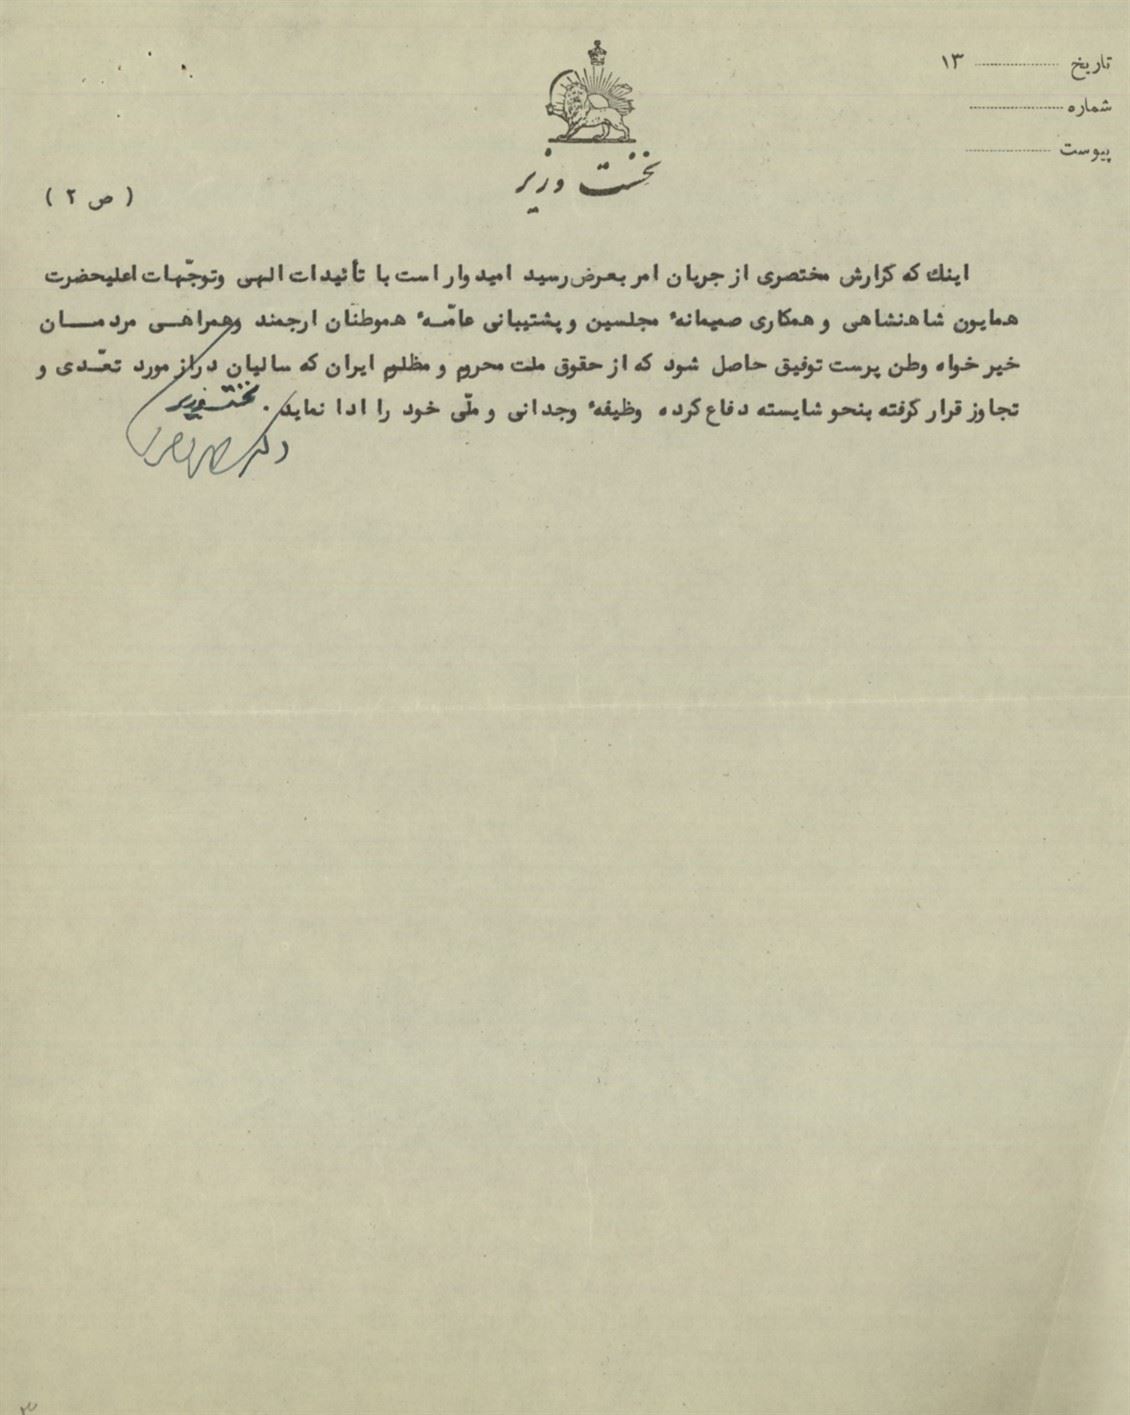 تاریخ ............ ۱۳
شماره ............
پیوست ............
نخست وزیر
( ص ۲ )
اینك که گزارش مختصری از جریان امر بعرض رسید امیدوار است با تأئیدات الهی وتوجّهات اعلیحضرت
همایون شاهنشاهی و همکاری صمیمانهٔ مجلسین و پشتیبانی عامّـهٔ هموطنان ارجمند وهمراهـی مردمـــان
خیر خواه وطن پرست توفیق حاصل شود که از حقوق ملت محروم و مظلوم ایران که سالیان دراز مورد تعـّدی و
تجاوز قرار گرفته بنحو شایسته دفاع کرده وظیفهٔ وجدانی و ملّی خود را ادا نماید . نخست‌وزیر
دکتر محمد مصدق
۳